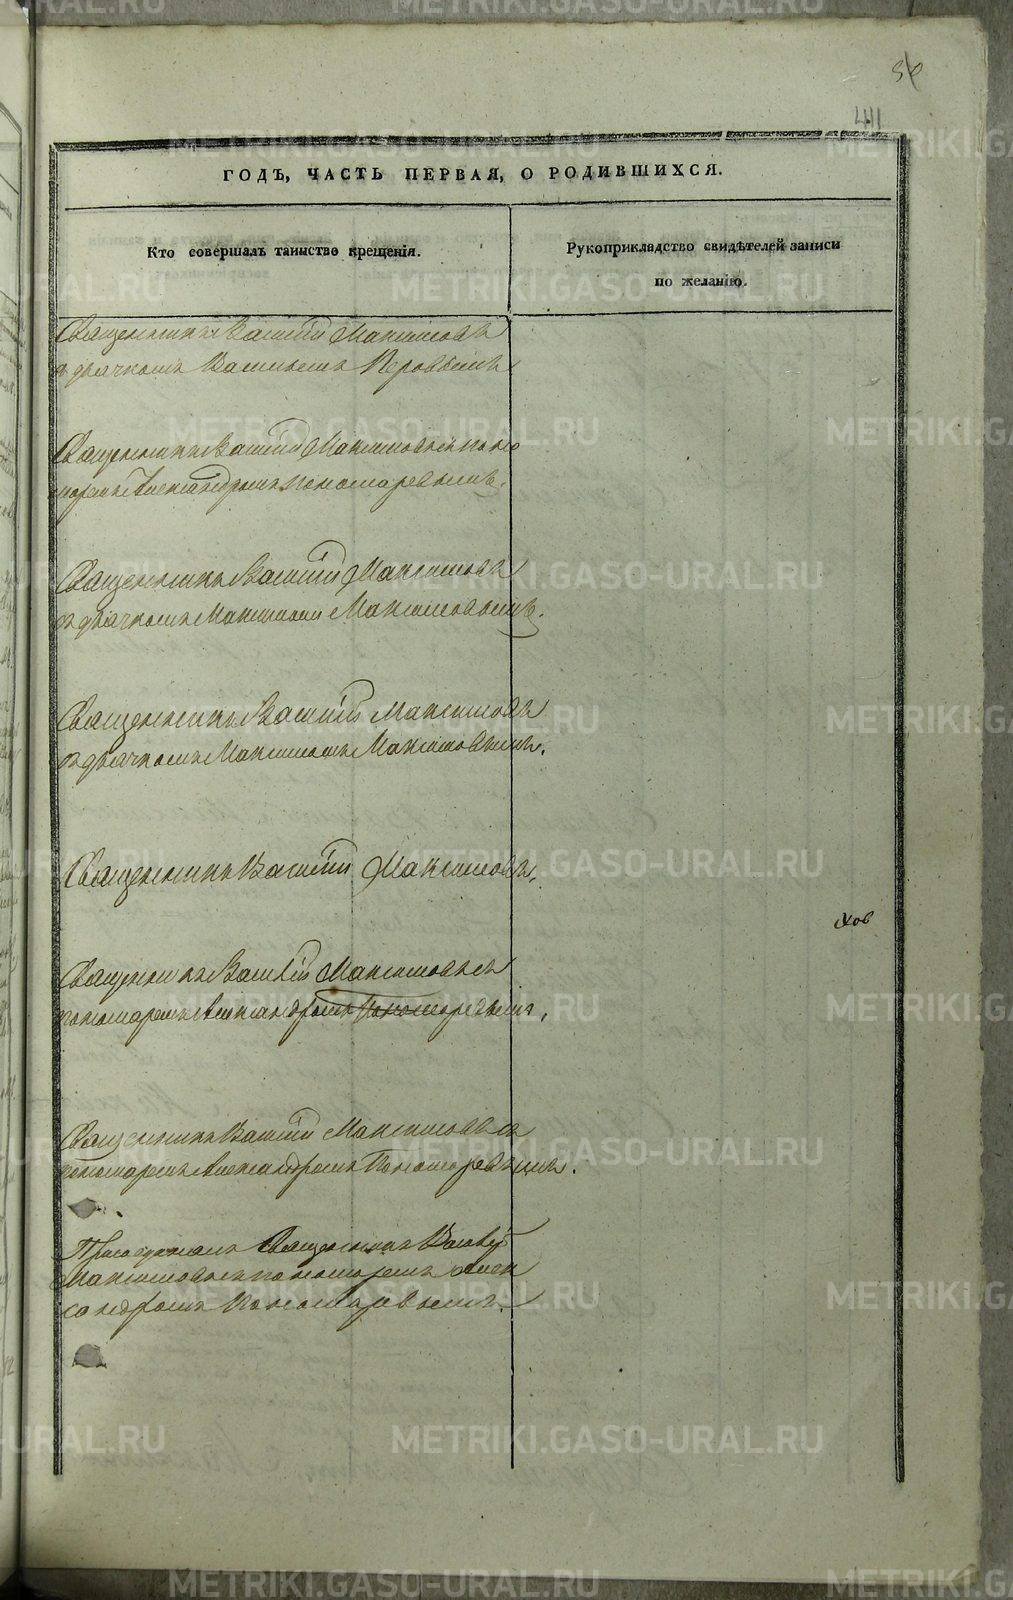 411
ГОДЪ, ЧАСТЬ ПЕРВАЯ, О РОДИВШИХСЯ.
Кто совершалъ таинство крещенія.
Рукоприкладство свидѣтелей записи
по желанію.
Священникъ Василій Максимовъ
съ дьячкомъ Васильемъ Первымъ
Священникъ Василій Максимовъ съ поно
маремъ Александромъ Пономаревымъ.
Священникъ Василій Максимовъ
съ дьячкомъ Максимомъ Максимовымъ.
Священникъ Василій Максимовъ
съ дьячкомъ Максимомъ Максимовымъ.
Священникъ Василій Максимовъ.
Священникъ Василій Максимовъ съ
пономаремъ Александромъ Пономаревымъ.
Священникъ Василій Максимовъ съ
пономаремъ Александромъ Пономаревымъ.
Священникъ Василій
Максимовъ съ пономаремъ Алек
сандромъ Пономаревымъ.
METRIKI.GASO-URAL.RU